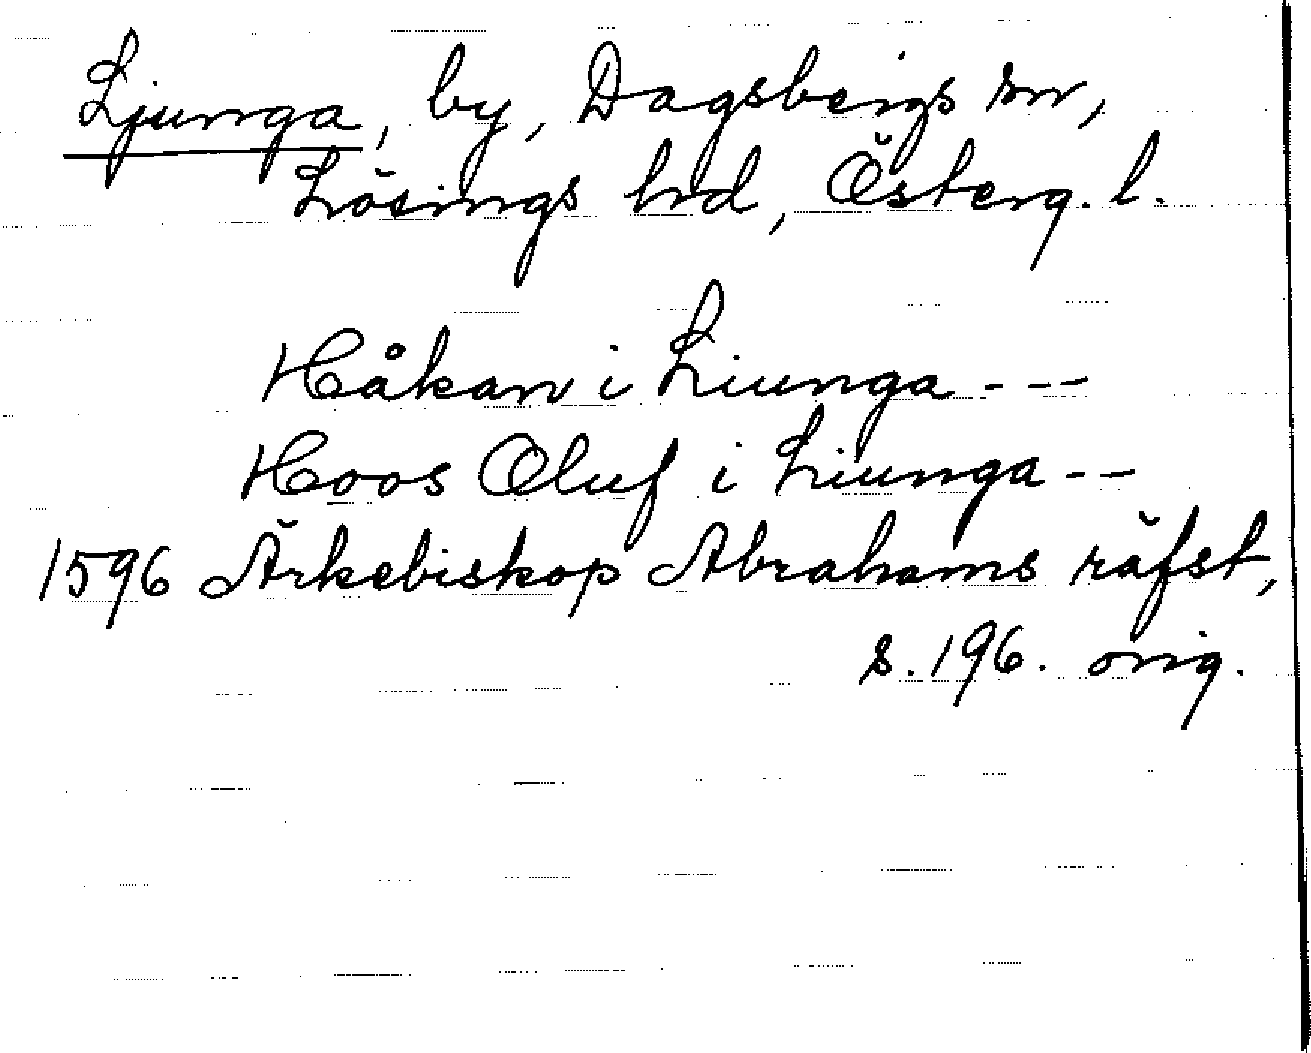 Ljunga, by, Dagsbergs sn,
Lösings hrd, Österg. l.
Håkan i Liunga - - -
Hoos Oluf i Liunga - -
1596 Ärkebiskop Abrahams räfst,
s. 196. orig.